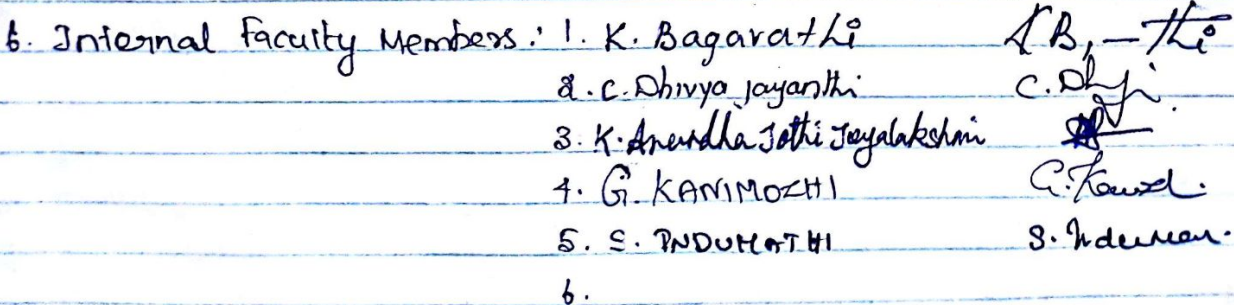 6. Internal Faculty Members : 1. K. Bagavathi
2. C. Dhivya jayanthi C. Dh
3. K. Anuradha Jothi Jeyalakshmi
4. G. KANIMOZHI
5. S. INDUMATHI
6.